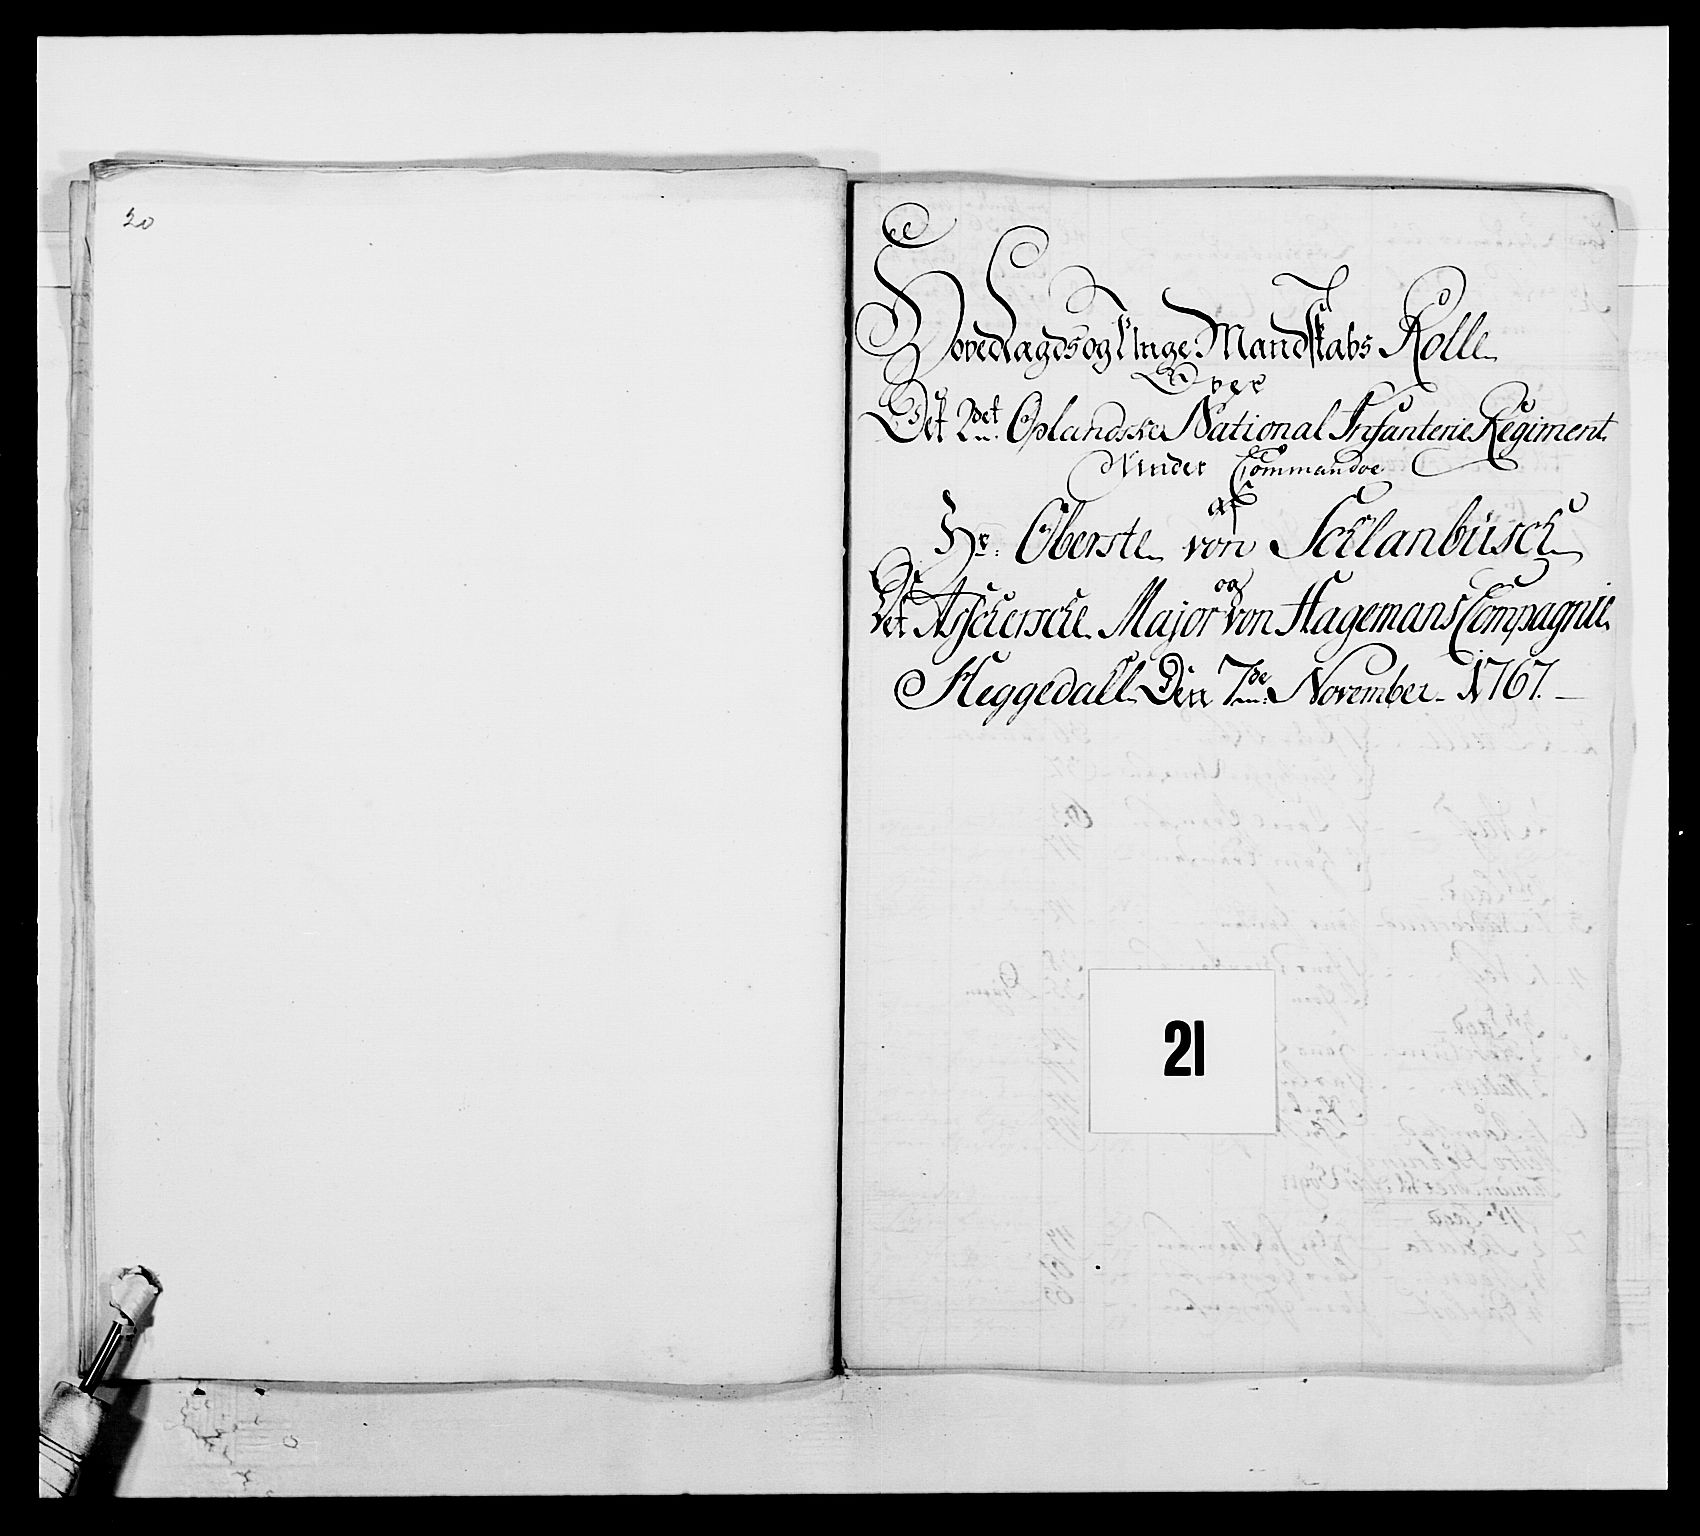 20
Hovedlagds og Unge Mandskabs Rolle
Over
Det 2det Oplandske National Infanterie Regiment
Under Commandoe
af
Hr: Oberste von Schlanbüsch
og
Det Aschersche Major von Hagemans Compagnie
Heggedall Den 7de November 1767.
21